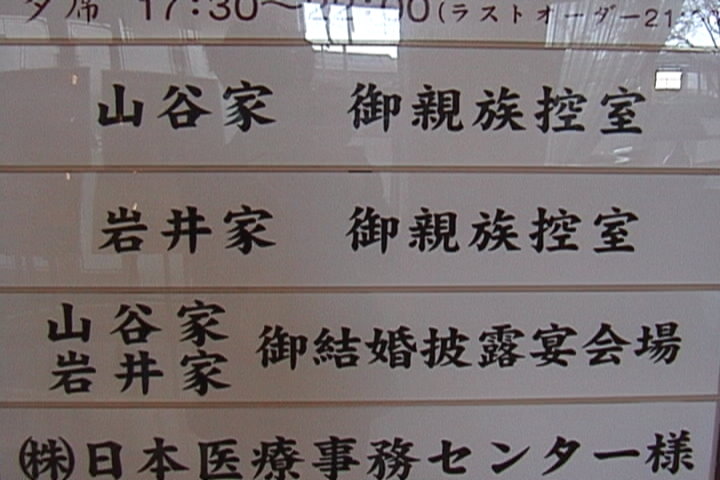 夕席 17:30～22:00(ラストオーダー21:
山谷家 御親族控室
岩井家 御親族控室
山谷家
岩井家 御結婚披露宴会場
㈱日本医療事務センター様